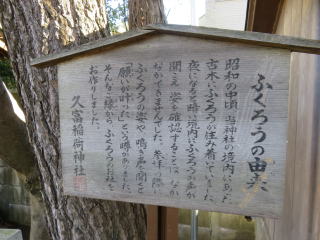 ふくろうの由来
昭和の中頃、当神社の境内にあった
古木にふくろうが住み着いていました。
夜になる時に境内にふくろうの声が
聞こえ、姿を確認することは、なか
なかできませんでした。参拝の際に
ふくろうの姿や、鳴き声を聞くと
「願いが叶った」という噂がありました。
そんなご縁から、ふくろうのお社を
お作りしました。
久富稲荷神社